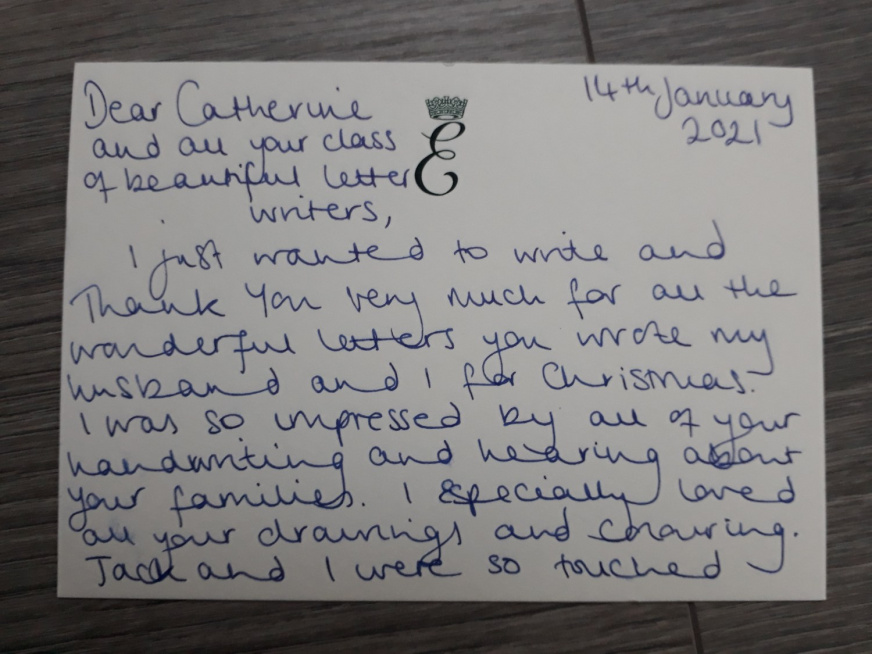 Dear Catherine
and all your class
of beautiful letter
writers,
14th January
2021
E
I just wanted to write and
Thank You very much for all the
wonderful letters you wrote my
husband and I for Christmas.
I was so impressed by all of your
handwriting and hearing about
your families. I especially loved
all your drawings and colouring.
Jack and I were so touched